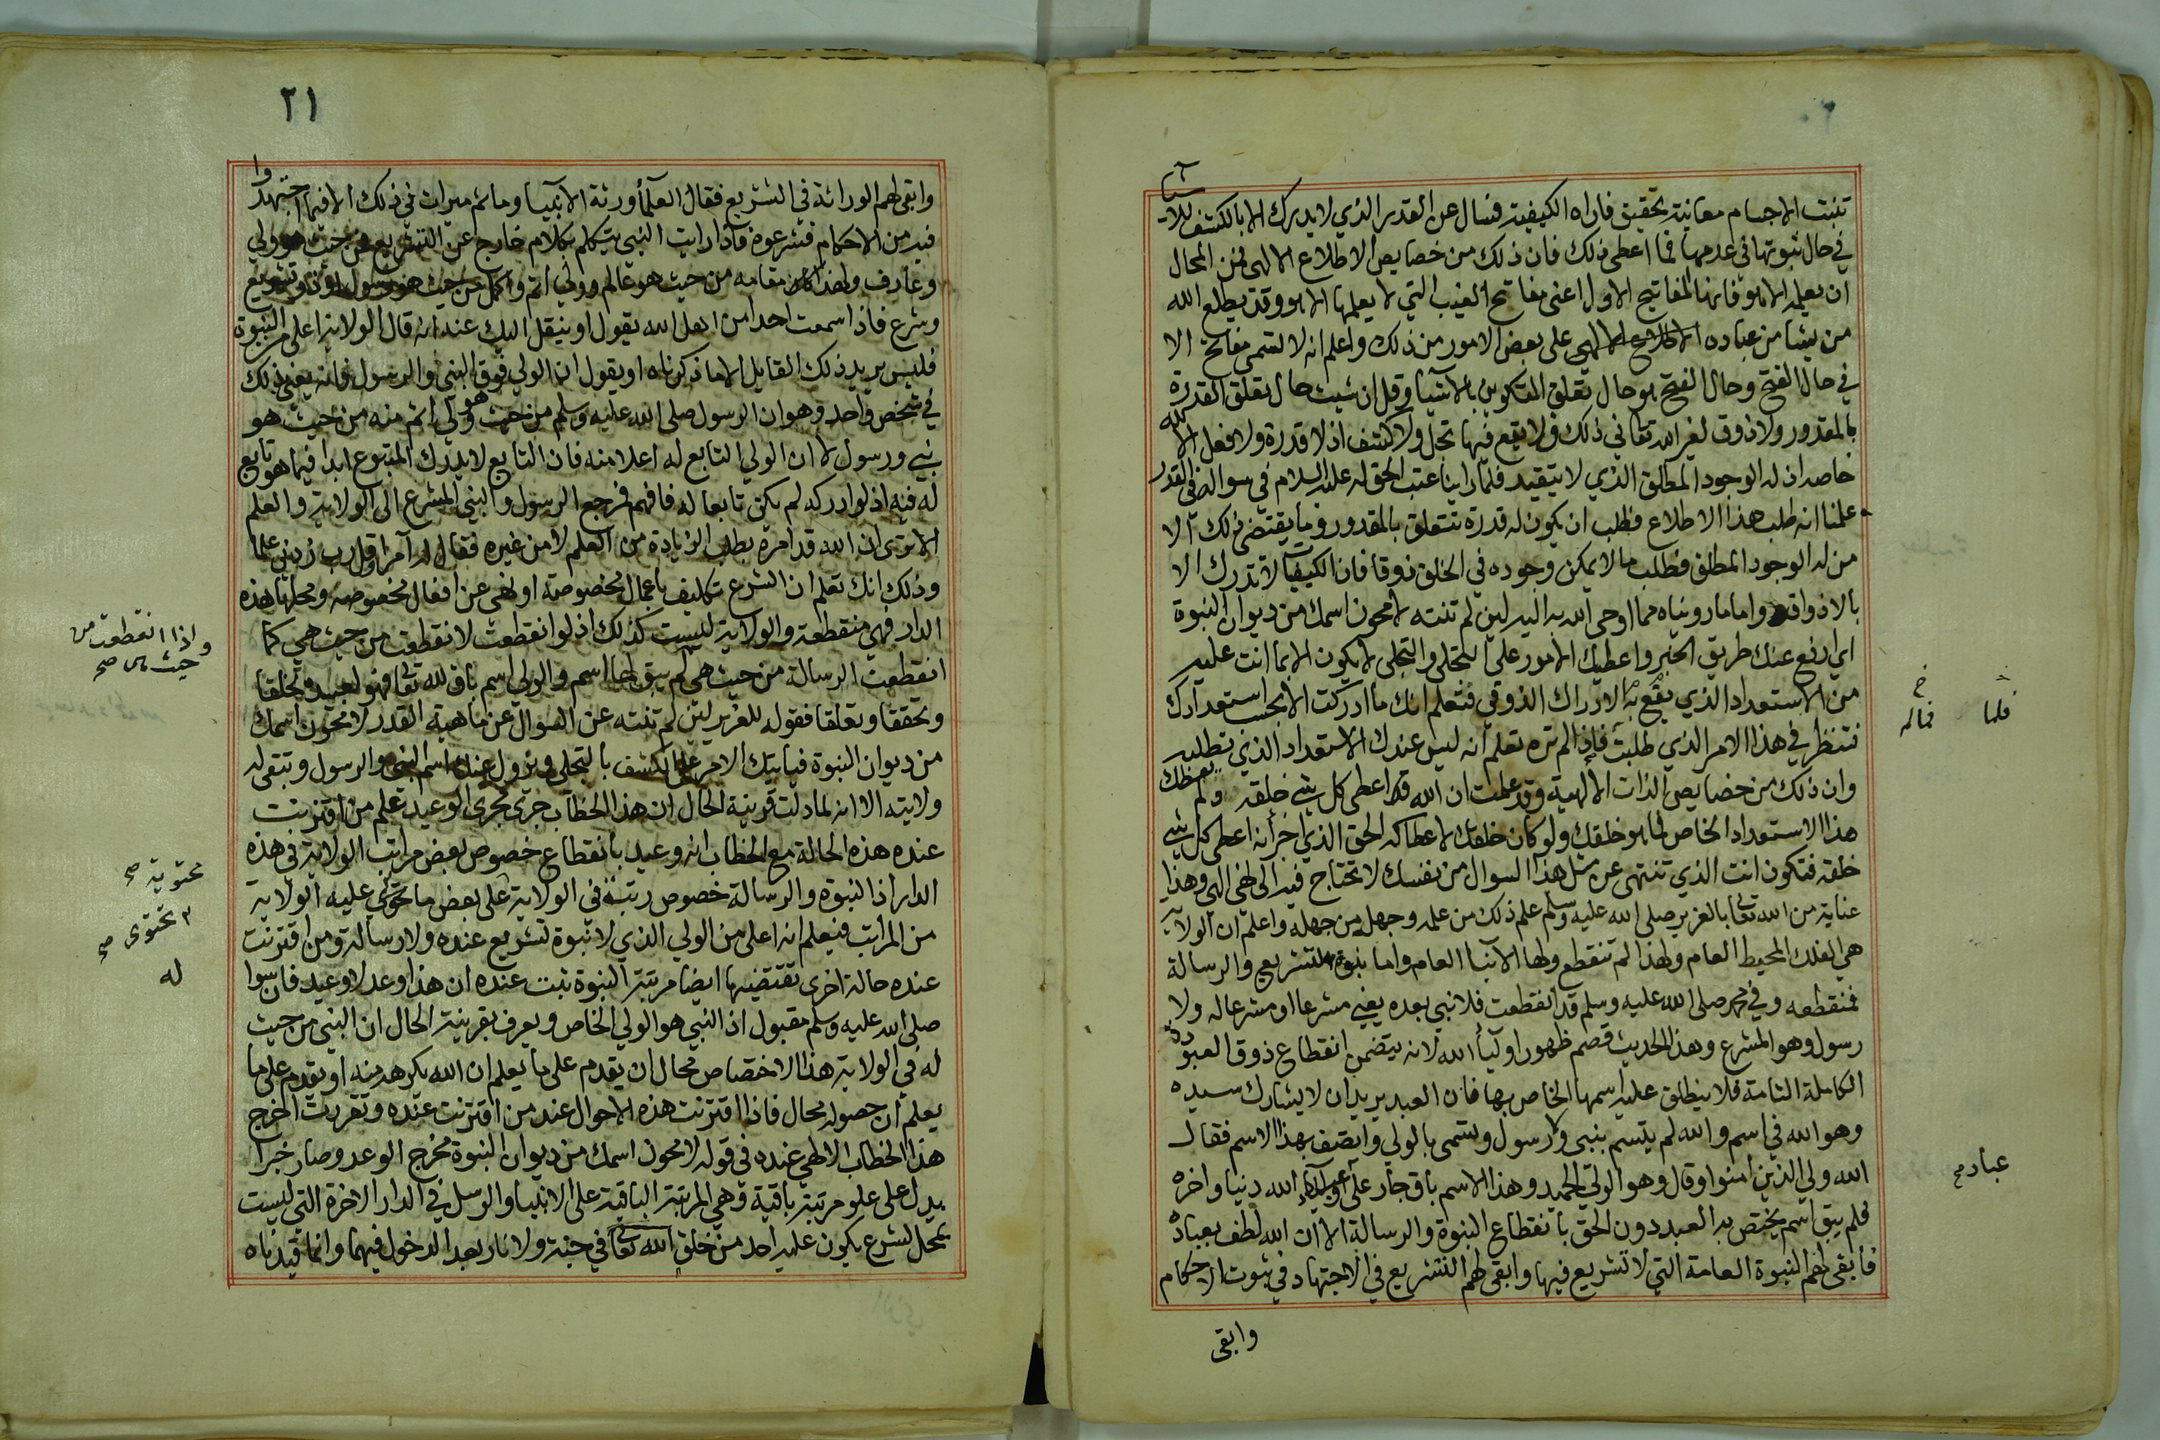 تنبت الاجسام معانية تحقيق فاراه الكيفية فسال عن القدر الذي لا يدرك الا بالكشف للاشيآ
في حال ثبوتها في عدمها فما اعطي ذلك فان ذلك من خصايص الاطلاع الالهي فمن المحال
ان يعلمه الا هو فانها المفاتيح الاول اعني مفاتح الغيب التي لا يعلمها الا هو وقد يطلع الله
من يشا من عباده الالهي على بعض الامور من ذلك واعلم انه لا تسمى مفاتح الا
في حال الفتح وحال الفتح هو حال تعلق التكوين بالاشيا وقل ان شيت حال تعلق القدرة
بالمقدور ولا ذوق لغير الله تعالى في ذلك فلا يقع فيها تجل ولا كشف اذ لا قدرة ولا فعل الا لله
خاصه اذ له الوجود المطلق الذي لا يتقيد فلما راينا عتب الحق له عليه السلام في سواله في القدر
علمنا انه طلب هذا الاطلاع فطلب ان يكون له قدرة تتعلق بالمقدور وما يقتضي ذلك الا
من له الوجود المطلق فطلب ما لا يمكن وجوده في الخلق ذوقا فان الكيفيات لا تدرك الا
بالاذواق واما ما رويناه مما اوحي الله به اليه لين لم تنته لامحون اسمك من ديوان النبوة
اي ارفع عنك طريق الخبر واعطيك الامور على التجلي والتجلي لا يكون الا بما انت عليه
من الاستعداد الذي يقع به الادراك الذوقي فتعلم انك ما ادركت الا بحسب استعدادك
فتنظر في هذا الامر الذي طلبت فاذا لم تره تعلم انه ليس عندك الاستعداد الذي تطلبه
وان ذلك من خصايص الذات الالهية وقد علمت ان الله قد اعطى كل شي خلقه ولم يعطك
هذا الاستعداد الخاص فما هو خلقك ولو كان خلقك لاعطاكه الحق الذي اخبر انه اعطى كل شي
خلقه فتكون انت الذي تنتهي عن مثل هذا السوال من نفسك لا تحتاج فيه الى نهي الهي وهذا
عناية من الله تعالى بالعزير صلى الله عليه وسلم علم ذلك من علمه وجهله من جهله واعلم ان الولاية
هي الفلك المحيط العام ولهذا لم تنقطع ولها الانبا العام واما نبوة التشريع والرسالة
فمنقطعه وفي محمد صلى الله عليه وسلم قد انقطعت فلا نبي بعده يعني مشرعا او مشرعا له ولا
رسول وهو المشرع وهذا الحديث قصم ظهور اوليآ الله لانه يتضمن انقطاع ذوق العبودة
الكاملة التامة فلا ينطلق عليه اسمها الخاص بها فان العبد يريد ان لا يشارك سيده
وهو الله في اسم والله لم يتسم بنبي ولا رسول وتسمى بالولي واتصف بهذا الاسم فقال
الله ولي الذين امنوا وقال وهو الولي الحميد وهذا الاسم باق جار على الله دنيا واخره
فلم يبق اسم يختص به العبد دون الحق بانقطاع النبوة والرسالة الا ان الله لطف بعباده
فابقى لهم النبوة العامة التي لا تشريع فيها وابقى لهم التشريع في الاجتهاد في ثبوت الاحكام
وابقى
خ
فماله
فلما
عباد صح
٢١
وابقى لهم الوراثة في التشريع فقال العلمآ ورثة الانبيآ وما ثم ميراث في ذلك الا فيما اجتهدوا
فيه من الاحكام فشرعوه فاذا رايت النبي يتكلم بكلام خارج عن التشريع فمن حيث هو ولي
وعارف ولهذا كان مقامه من حيث هو عالم وولي اتم واكمل من حيث هو رسول او ذو تشريع
وشرع فاذا سمعت احدا من اهل الله يقول او ينقل اليك عنه انه قال الولاية اعلى من النبوة
فليس يريد ذلك القايل الا ما ذكرناه او يقول ان الولي فوق النبي والرسول فانه يعني ذلك
في شخص واحد وهو ان الرسول صلى الله عليه وسلم من حيث هو ولي اتم منه من حيث هو
نبي ورسول لا ان الولي التابع له اعلا منه فان التابع لا يدرك المتبوع ابدا فيما هو تابع
له فيه اذ لو ادركه لم يكن تابعا له فافهم فرجع الرسول والنبي المشرع الى الولاية والعلم
الا ترى ان الله قد امره بطلب الزيادة من العلم لا من غيره فقال له آمرا وقل رب زدني علما
وذلك انك تعلم ان الشرع تكليف باعمال مخصوصة او نهي عن افعال مخصوصه ومحلها هذه
الدار فهي منقطعة والولاية ليست كذلك اذ لو انقطعت لانقطعت من حيث هي كما
انقطعت الرسالة من حيث هي لم يبق لها اسم والولي اسم باق لله تعالى فهو لعبيده تخلقا
وتحققا وتعلقا فقوله للعزير لين لم تنته عن السوال عن ماهية القدر لامحون اسمك
من ديوان النبوة فياتيك الامر على الكشف بالتجلي ويزول عنك اسم النبي والرسول وتبقى له
ولايته الا انه لما دلت قرينة الحال ان هذا الخطاب جرى مجرى الوعيد علم من اقترنت
عنده هذه الحالة مع الخطاب انه وعيد بانقطاع خصوص بعض مراتب الولاية في هذه
الدار اذ النبوة والرسالة خصوص رتبة في الولاية على بعض ما تحتوي عليه الولاية
من المراتب فيعلم انه اعلى من الولي الذي لا نبوة تشريع عنده ولا رسالة ومن اقترنت
عنده حالة اخرى تقتضيها ايضا مرتبة النبوة يثبت عنده ان هذا وعد لا وعيد فان سواله
صلى الله عليه وسلم مقبول اذ النبي هو الولي الخاص ويعرف بقرينة الحال ان النبي من حيث
له في الولاية هذا الاختصاص محال ان يقدم على ما يعلم ان الله يكرهه منه او يقدم على ما
يعلم ان حصوله محال فاذا اقترنت هذه الاحوال عند من اقترنت عنده وتقررت اخرج
هذا الخطاب الالهي عنده في قوله لامحون اسمك من ديوان النبوة مخرج الوعد وصار خبرا
يدل على علو مرتبة باقية وهي المرتبة الباقية على الانبيا والرسل في الدار الاخرة التي ليست
بمحل لشرع يكون عليه احد من خلق الله تعالى في جنة ولا نار بعد الدخول فيهما وانما قيدناه
واذا انقطعت من
حيث هي صح
محتوية صح
تحتوى صح
له